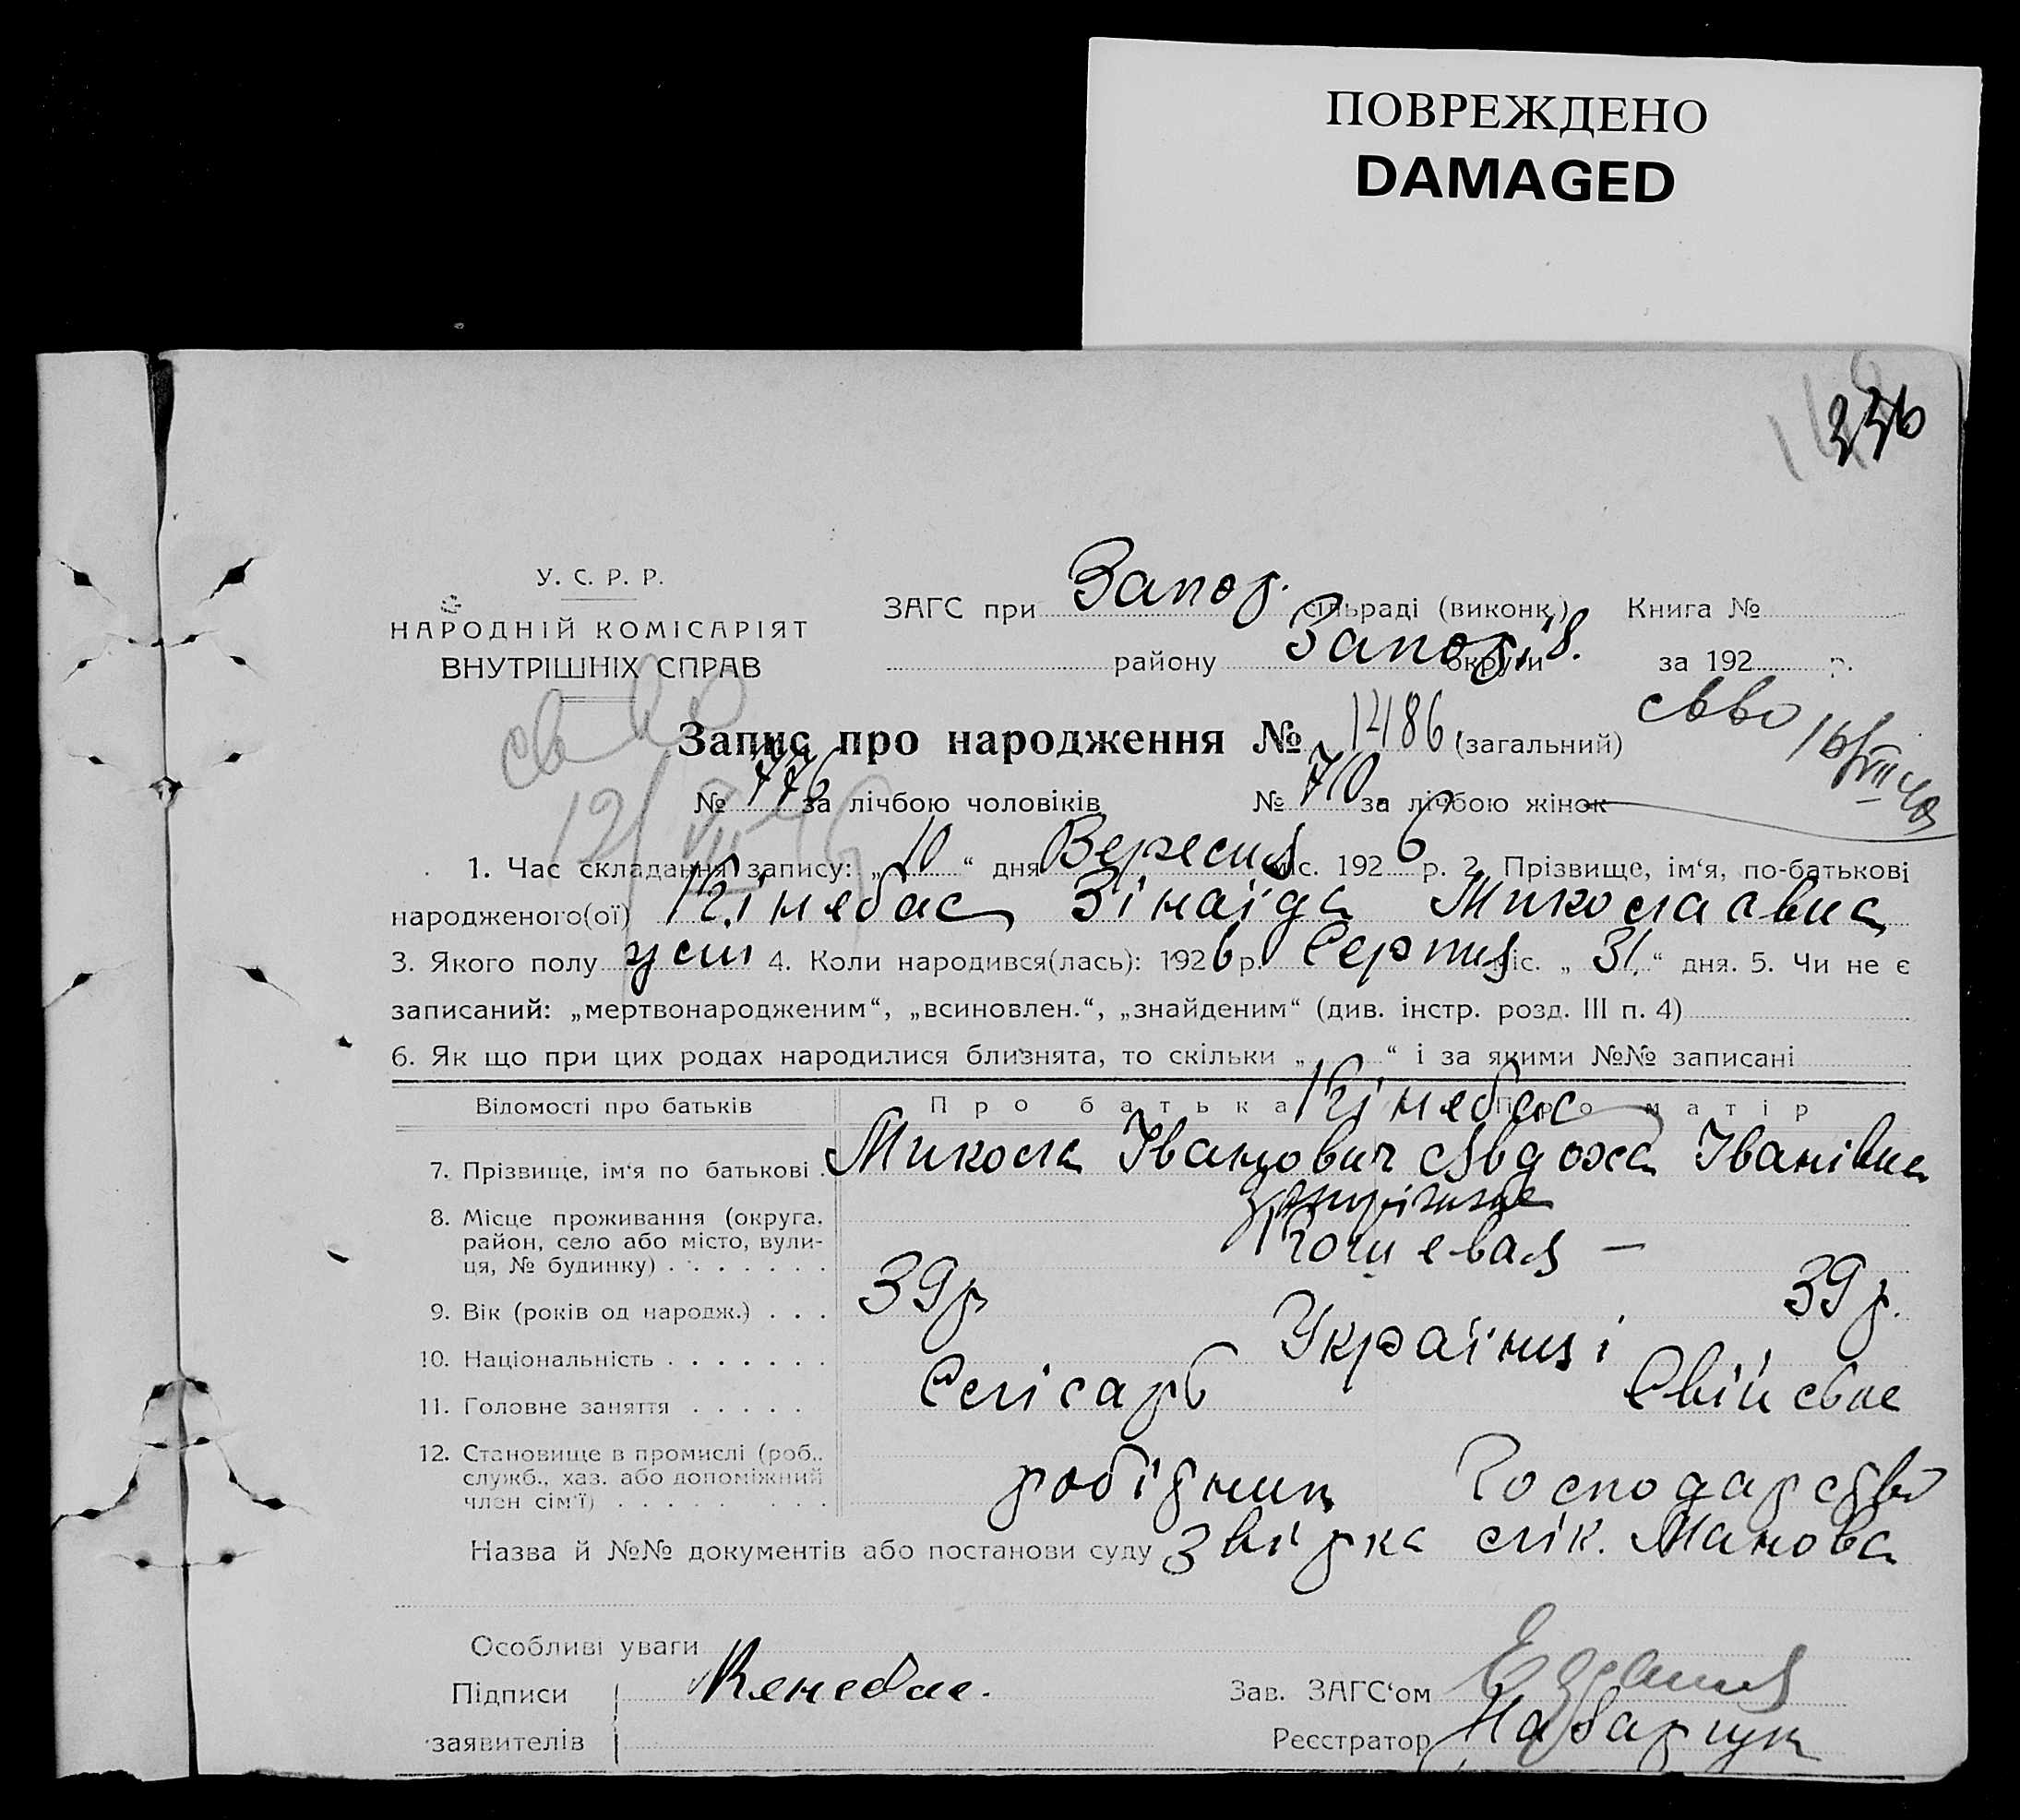 ПОВРЕЖДЕНО
DAMAGED
336
У. С. Р. Р.
НАРОДНІЙ КОМІСАРІЯТ
ВНУТРІШНІХ СПРАВ
ЗАГС при Запор. сільраді (виконк.) Книга №
району Запоріз. округи за 192 р.
Запис про народження № 1486 (загальний)
свво
№ 776 за лічбою чоловіків № 710 за лічбою жінок
1. Час складання запису: „10“ дня Вересня міс. 1926 р. 2. Прізвище, ім‘я, по-батькові
народженого(ої) Кінебас Зінаїда Миколаавна
3. Якого полу 4. Коли народився(лась): 1926 р. Серпня міс. „31“ дня. 5. Чи не є
записаний: „мертвонародженим“, „всиновлен.“, „знайденим“ (див. інстр. розд. III п. 4)
6. Як що при цих родах народилися близнята, то скільки „ “ і за якими №№ записані
Відомості про батьків Про батька Про матір
Кінебас
7. Прізвище, ім‘я по батькові Микола Іванович Явдоха Іванівна
8. Місце проживання (округа,
район, село або місто, вули-
ця, № будинку) Кошевая —
9. Вік (років од народж.) 39 р 39 р.
10. Національність Українці
11. Головне заняття Слісарь Свійське
12. Становище в промислі (роб.,
служб., хаз. або допоміжний
член сім‘ї) робітник Господарство
Назва й №№ документів або постанови суду Звірка лік. Манова
Особливі уваги
Підписи Кенебас.
заявителів
Зав. ЗАГС‘ом
Реєстратор